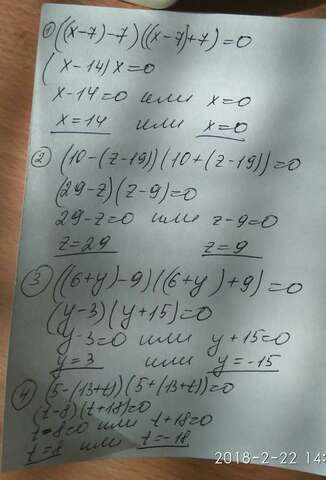 1) ((x-7)-7)((x-7)+7)=0
(x-14)x=0
x-14=0 или x=0
x=14 или x=0
2) (10-(z-19))(10+(z-19))=0
(29-z)(z-9)=0
29-z=0 или z-9=0
z=29 z=9
3) ((6+y)-9)((6+y)+9)=0
(y-3)(y+15)=0
y-3=0 или y+15=0
y=3 или y=-15
4) (5-(13+t))(5+(13+t))=0
(t-8)(t+18)=0
t-8=0 или t+18=0
t=8 или t=-18
2018-2-22 14: